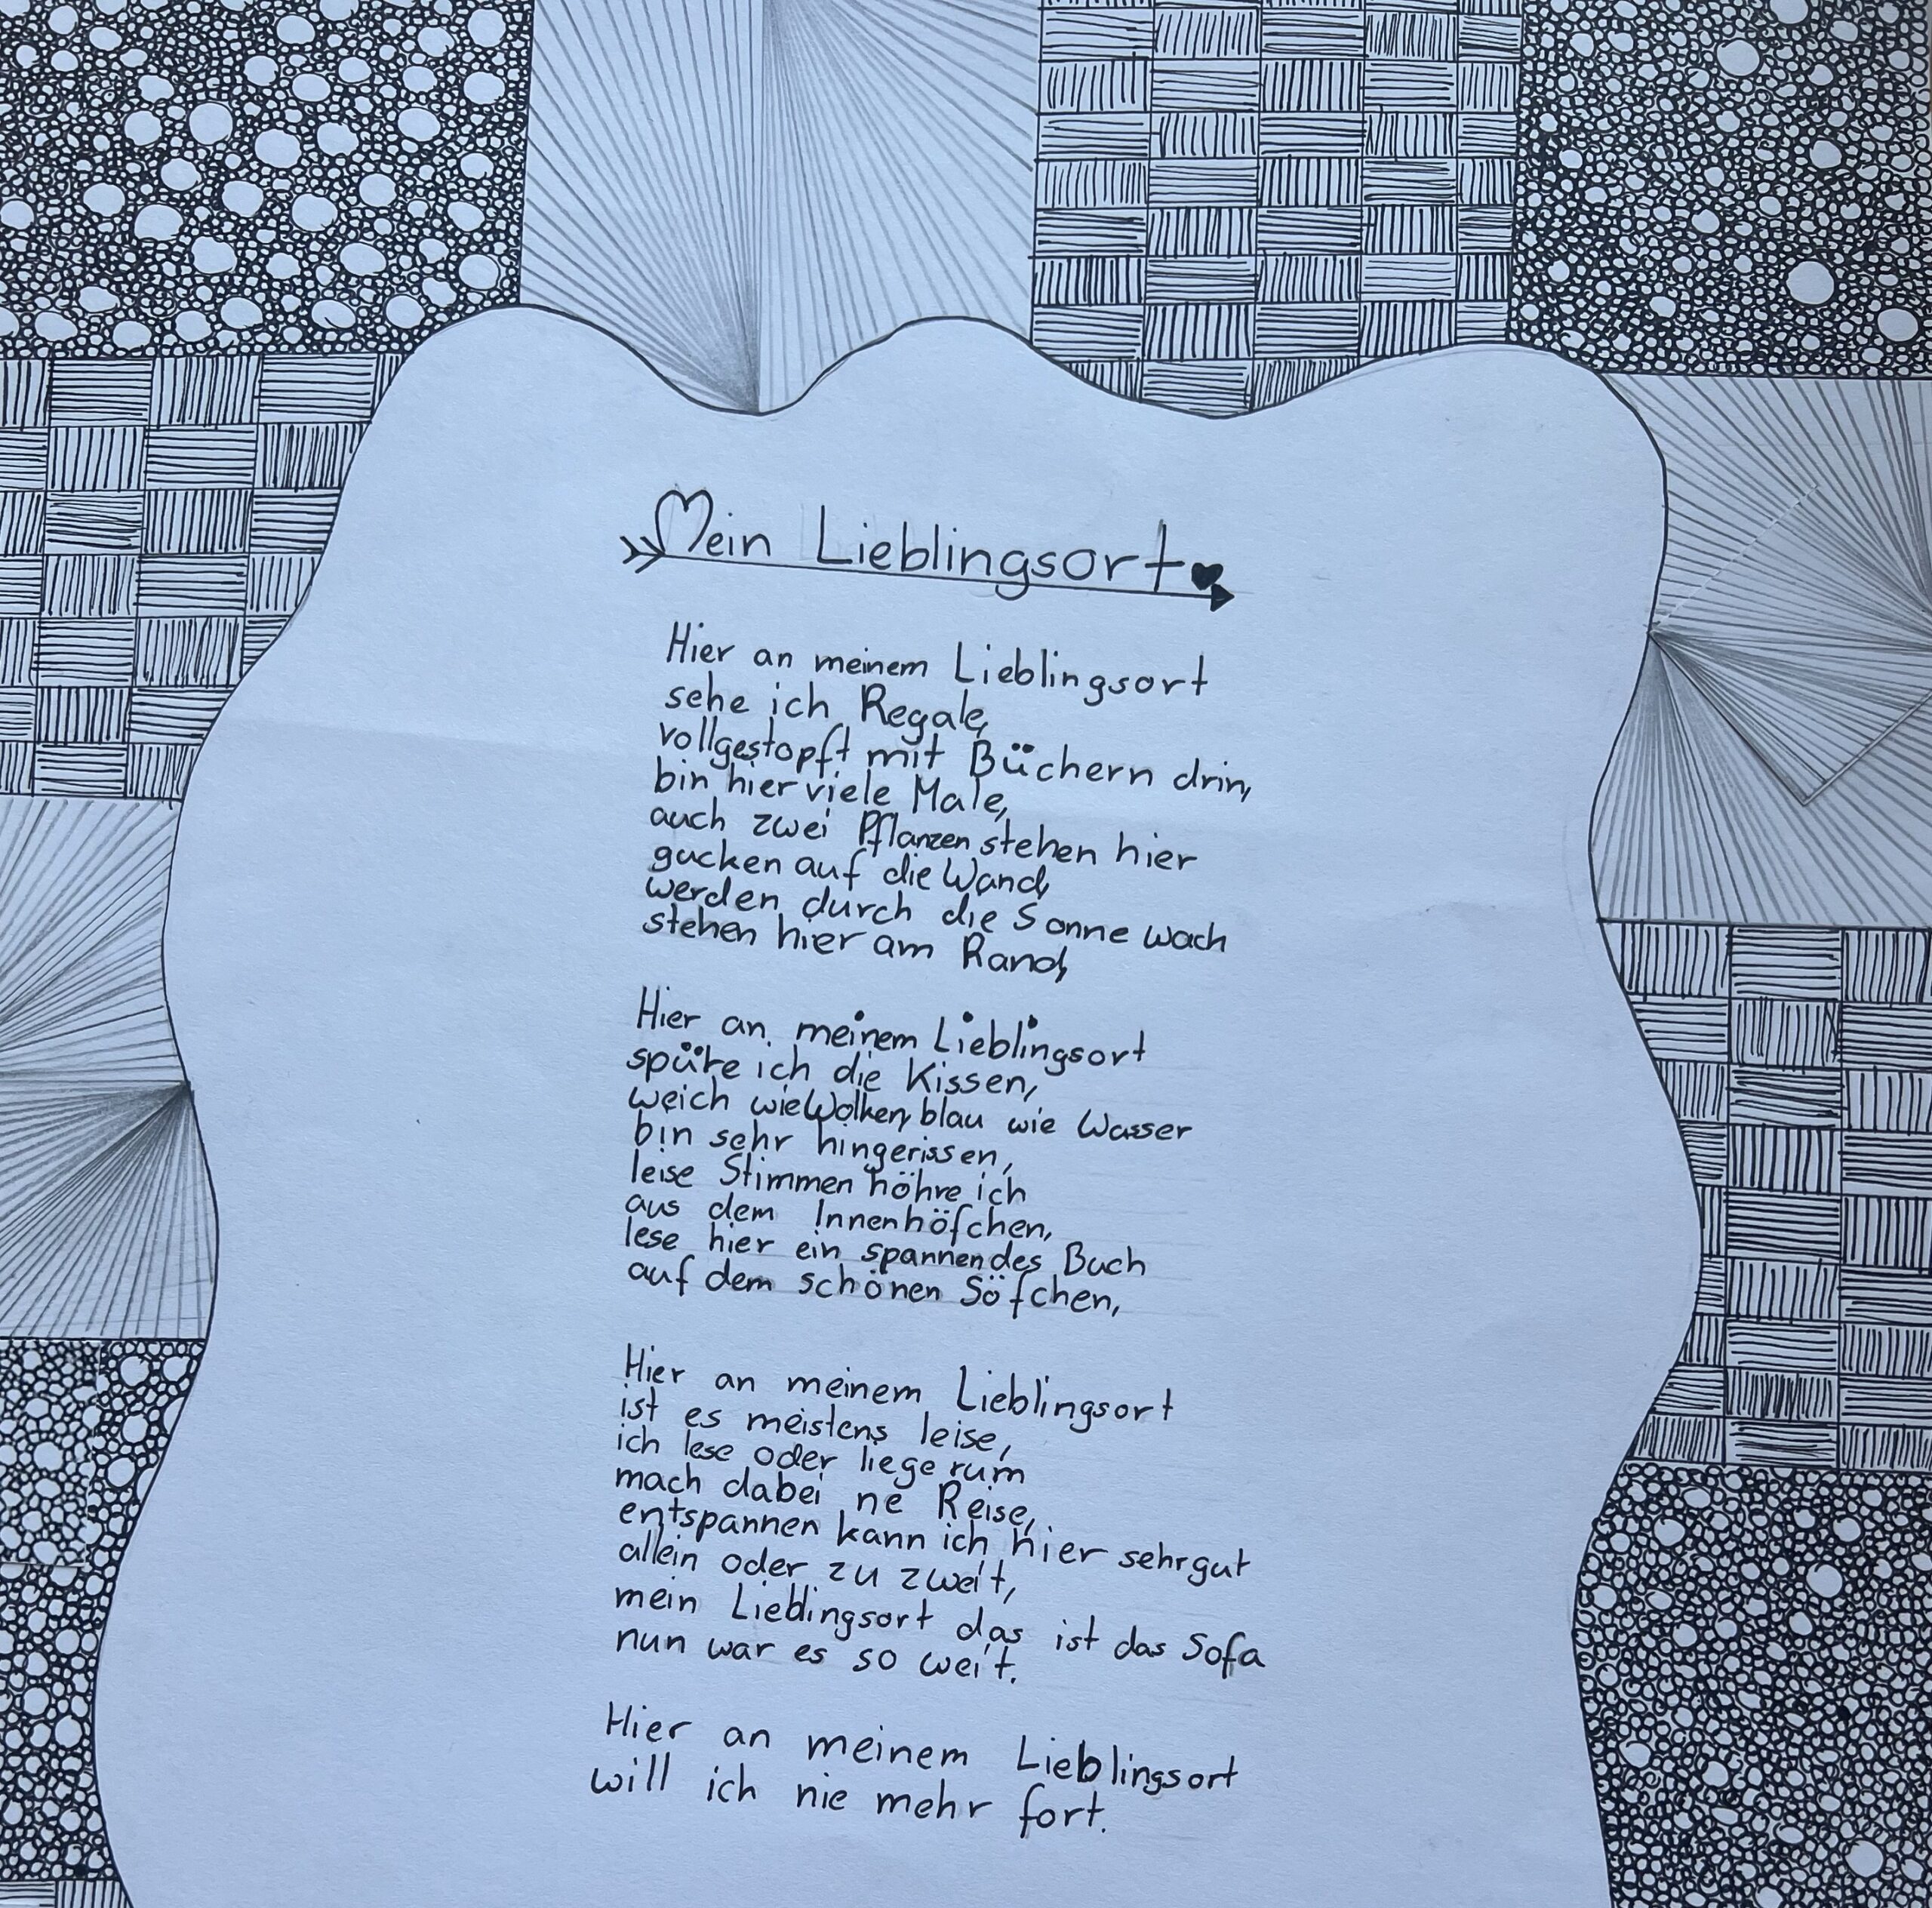 Mein Lieblingsort
Hier an meinem Lieblingsort
sehe ich Regale,
vollgestopft mit Büchern drin,
bin hier viele Male,
auch zwei Pflanzen stehen hier
gucken auf die Wand,
werden durch die Sonne wach
stehen hier am Rand,
Hier an meinem Lieblingsort
spüre ich die Kissen,
weich wie Wolken, blau wie Wasser
bin sehr hingerissen,
leise Stimmen höhre ich
aus dem Innenhöfchen,
lese hier ein spannendes Buch
auf dem schönen Söfchen,
Hier an meinem Lieblingsort
ist es meistens leise,
ich lese oder liege rum
mach dabei ne Reise,
entspannen kann ich hier sehr gut
allein oder zu zweit,
mein Lieblingsort das ist das Sofa
nun war es so weit.
Hier an meinem Lieblingsort
will ich nie mehr fort.